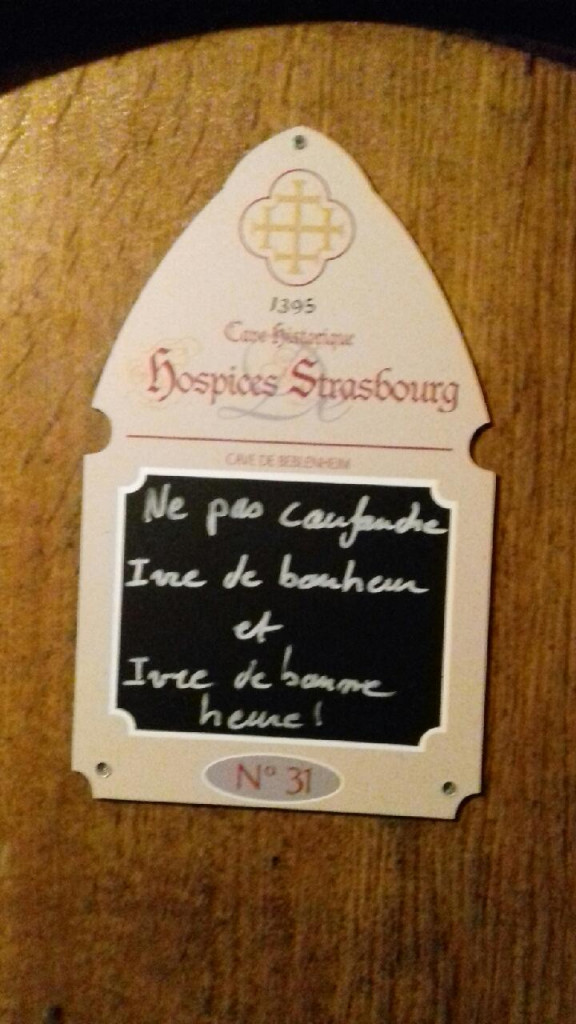 1395
Cave Historique
Hospices Strasbourg
CAVE DE BEBLENHEIM
Ne pas confondre
Ivre de bonheur
et
Ivre de bonne
heure !
N° 31